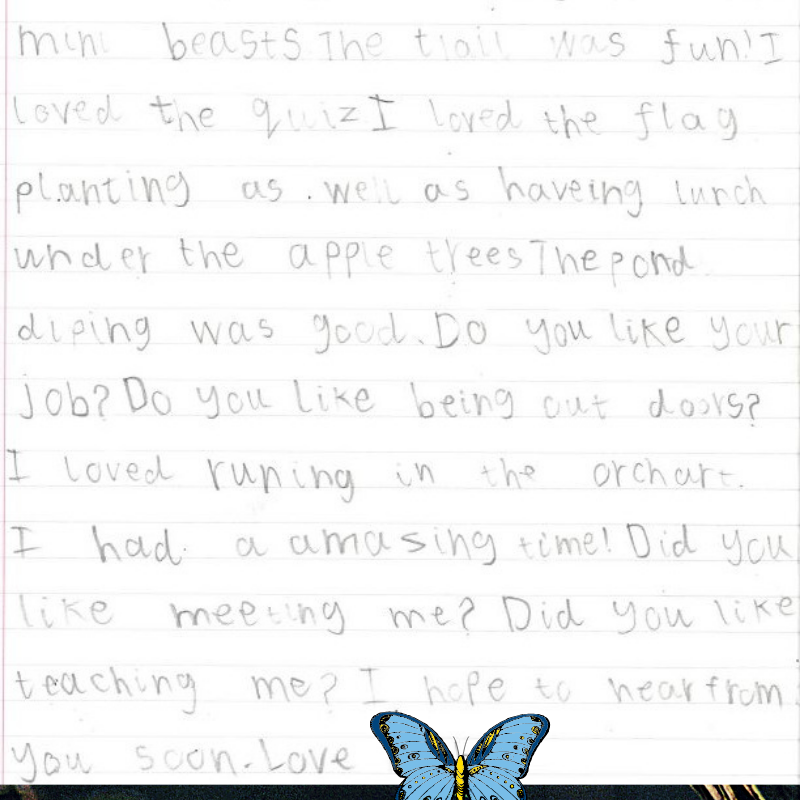 mini beasts. The trail was fun! I
loved the quiz I loved the flag
planting as . well as haveing lunch
under the apple trees The pond
diping was good. Do you like your
job? Do you like being out doors?
I loved runing in the orchart.
I had a amasing time! Did you
like meeting me? Did you like
teaching me? I hope to hear from
you soon. Love